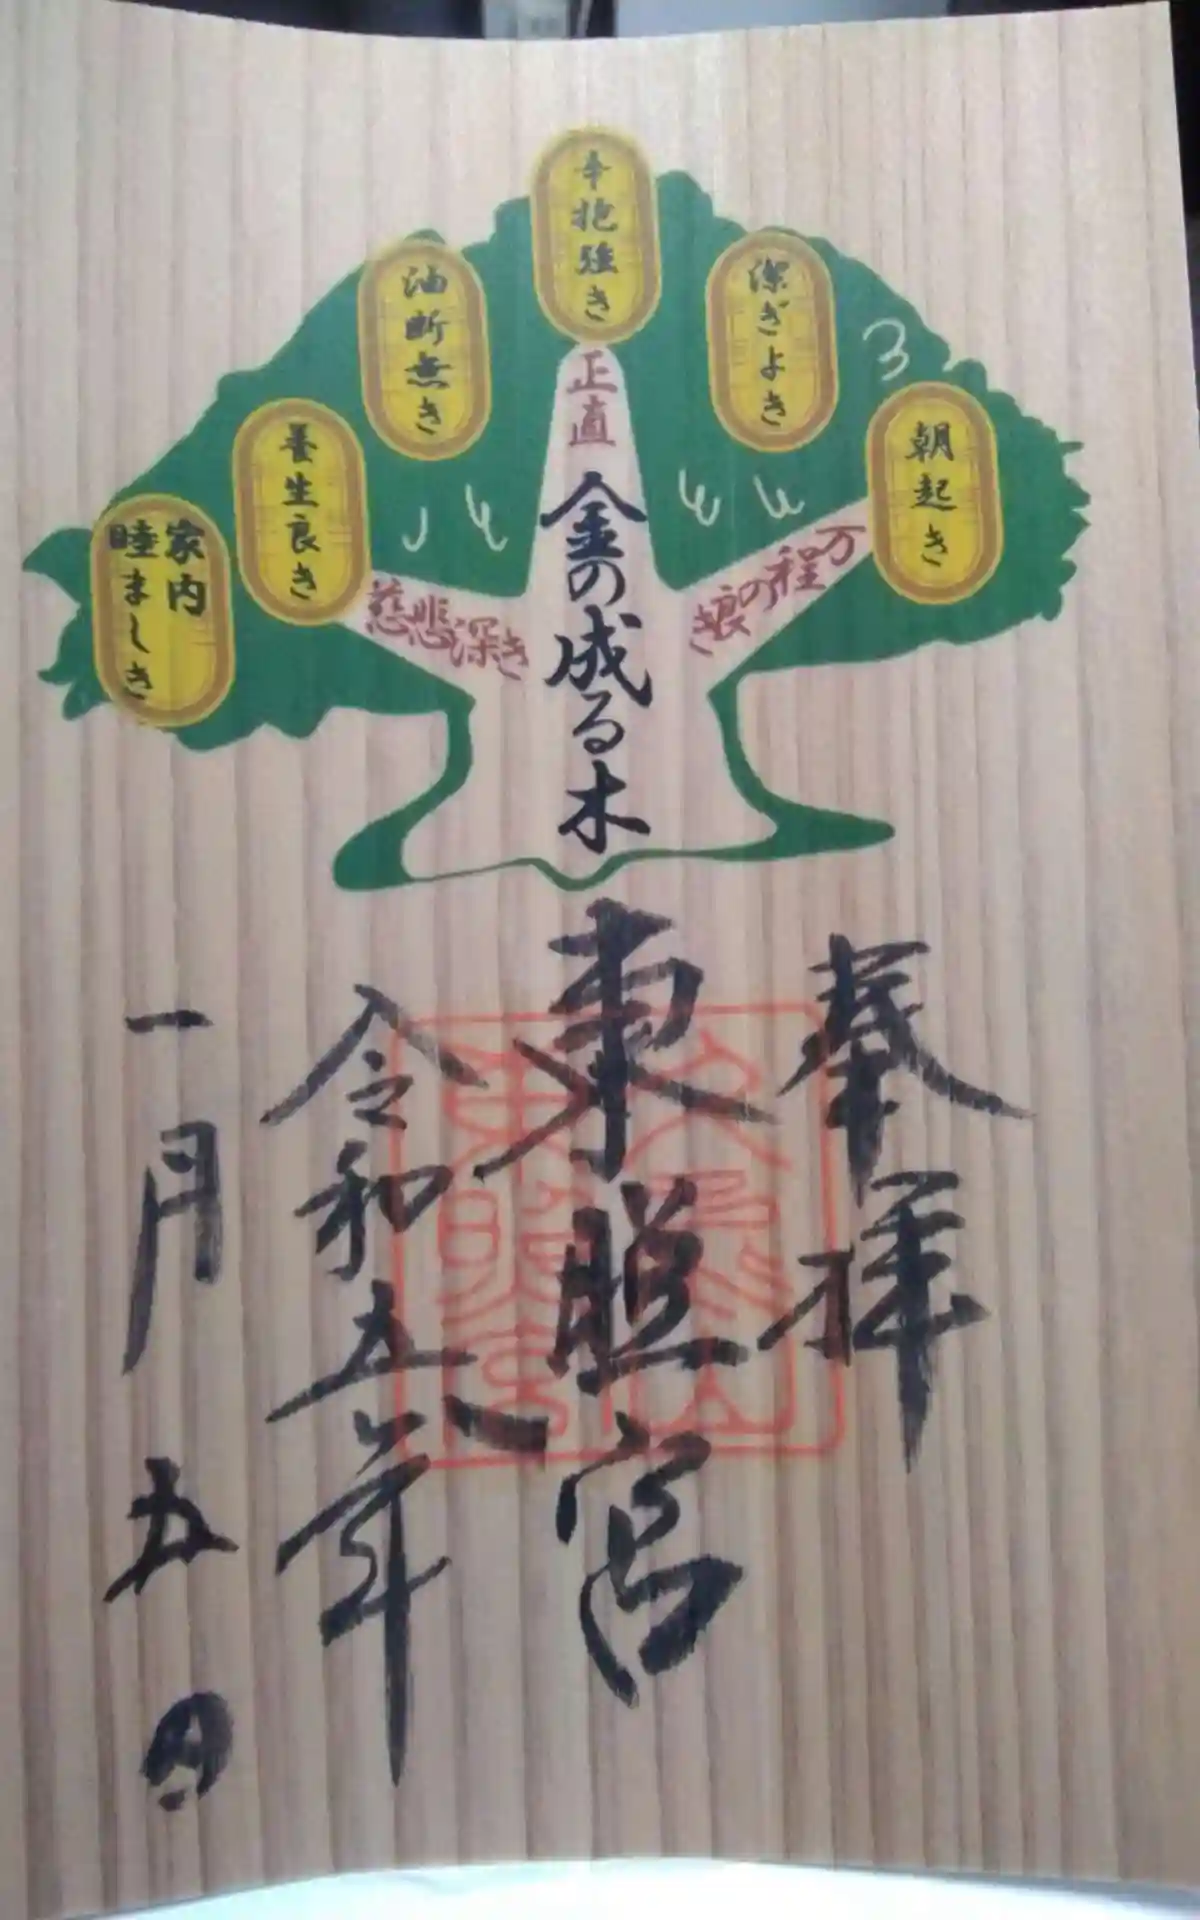 朝起き
潔ぎよき
辛抱強き
油断無き
養生良き
家内
睦ましき
万の程の良き
正直
慈悲深き
金の成る木
奉拝
東照宮
令和五年
一月五日